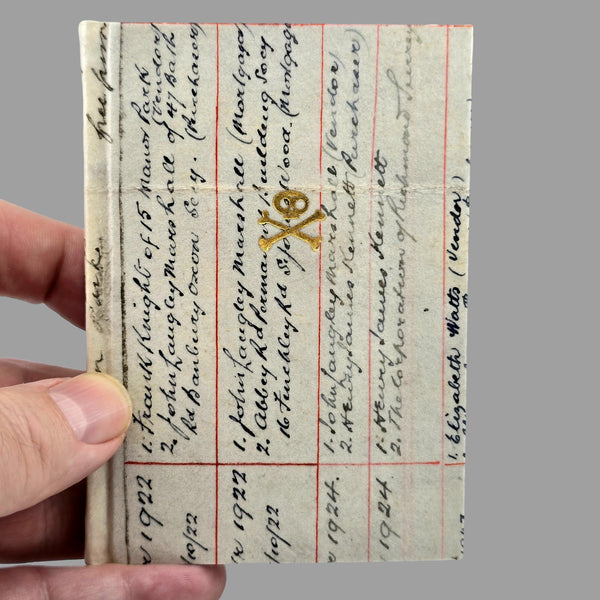 free from
1. Frank Knight of 15 Manor Park
(Vendor)
2. John Langley Marshall of 47 Bath
Rd Banbury Oxon Esq. (Purchaser)
r 1922
/10/22
1. John Langley Marshall (Mortgagor)
2. Abbey Rd Building Socy
16 Finchley Rd St Johns Wood. (Mortgagee
r 1922
/10/22
1. John Langley Marshall (Vendor)
2. Henry James Kennett Purchaser)
r 1924.
1. Henry James Kennett
2. The Corporation of Richmond Surrey
r 1924
1. Elizabeth Watts (Vendor)